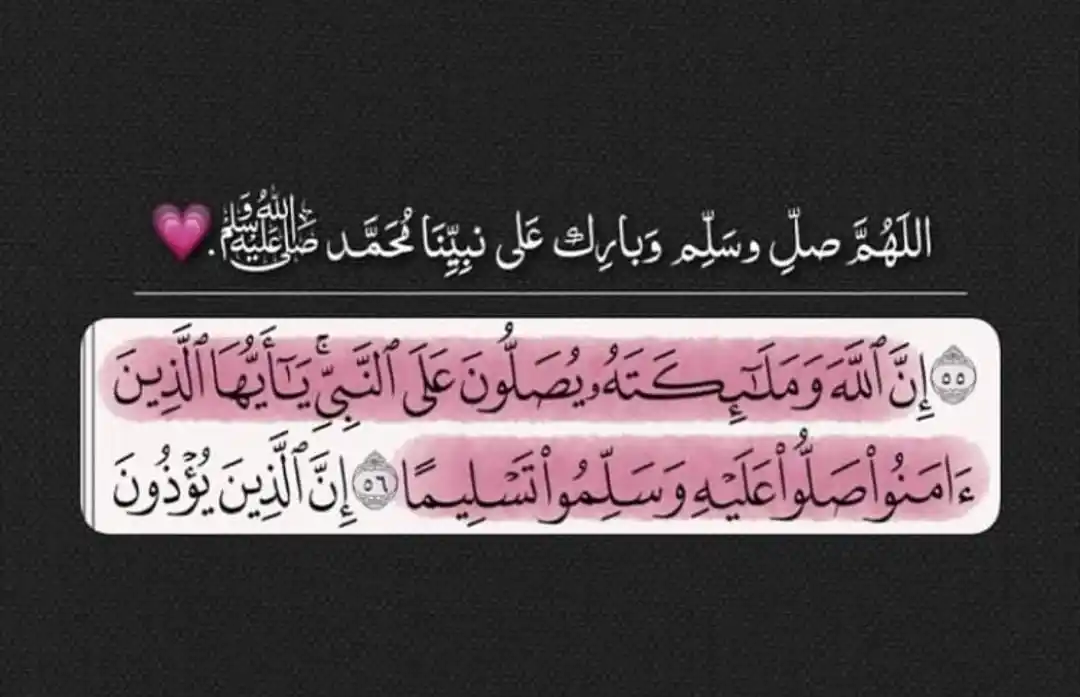 اللَهُمَّ صلِّ وسَلِّم وَبارِك عَلى نبِيِّنَا مُحَمَّد ﷺ.💗
۝٥٥ إِنَّ ٱللَّهَ وَمَلَٰٓئِكَتَهُۥ يُصَلُّونَ عَلَى ٱلنَّبِيِّۚ يَٰٓأَيُّهَا ٱلَّذِينَ
ءَامَنُوا۟ صَلُّوا۟ عَلَيْهِ وَسَلِّمُوا۟ تَسْلِيمًا ۝٥٦ إِنَّ ٱلَّذِينَ يُؤْذُونَ